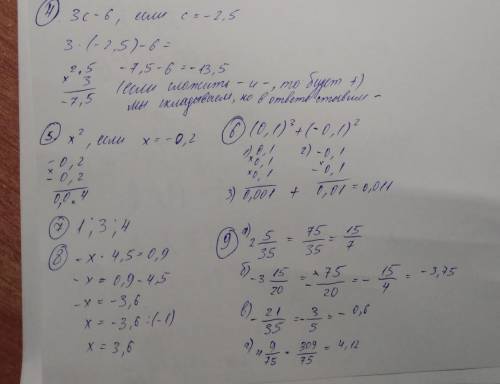 ④ 3c-6, если c=-2,5
3·(-2,5)-6=
×2,5
3
-7,5
-7,5-6=-13,5
(если сложить - и -, то будет +)
мы складываем, но в ответе ставим -
⑤ x², если x=-0,2
×-0,2
-0,2
0,04
⑥ (0,1)³+(-0,1)²
1) 0,1
×0,1
×0,1
2) -0,1
×-0,1
3) 0,001 + 0,01=0,011
⑦ 1; 3; 4
⑧ -x+4,5=0,9
-x=0,9-4,5
-x=-3,6
x=-3,6:(-1)
x=3,6
⑨ а) 2 5/35 = 75/35 = 15/7
б) -3 15/20 = -75/20 = -15/4 = -3,75
в) -21/35 = -3/5 = -0,6
г) 4 9/75 = 309/75 = 4,12